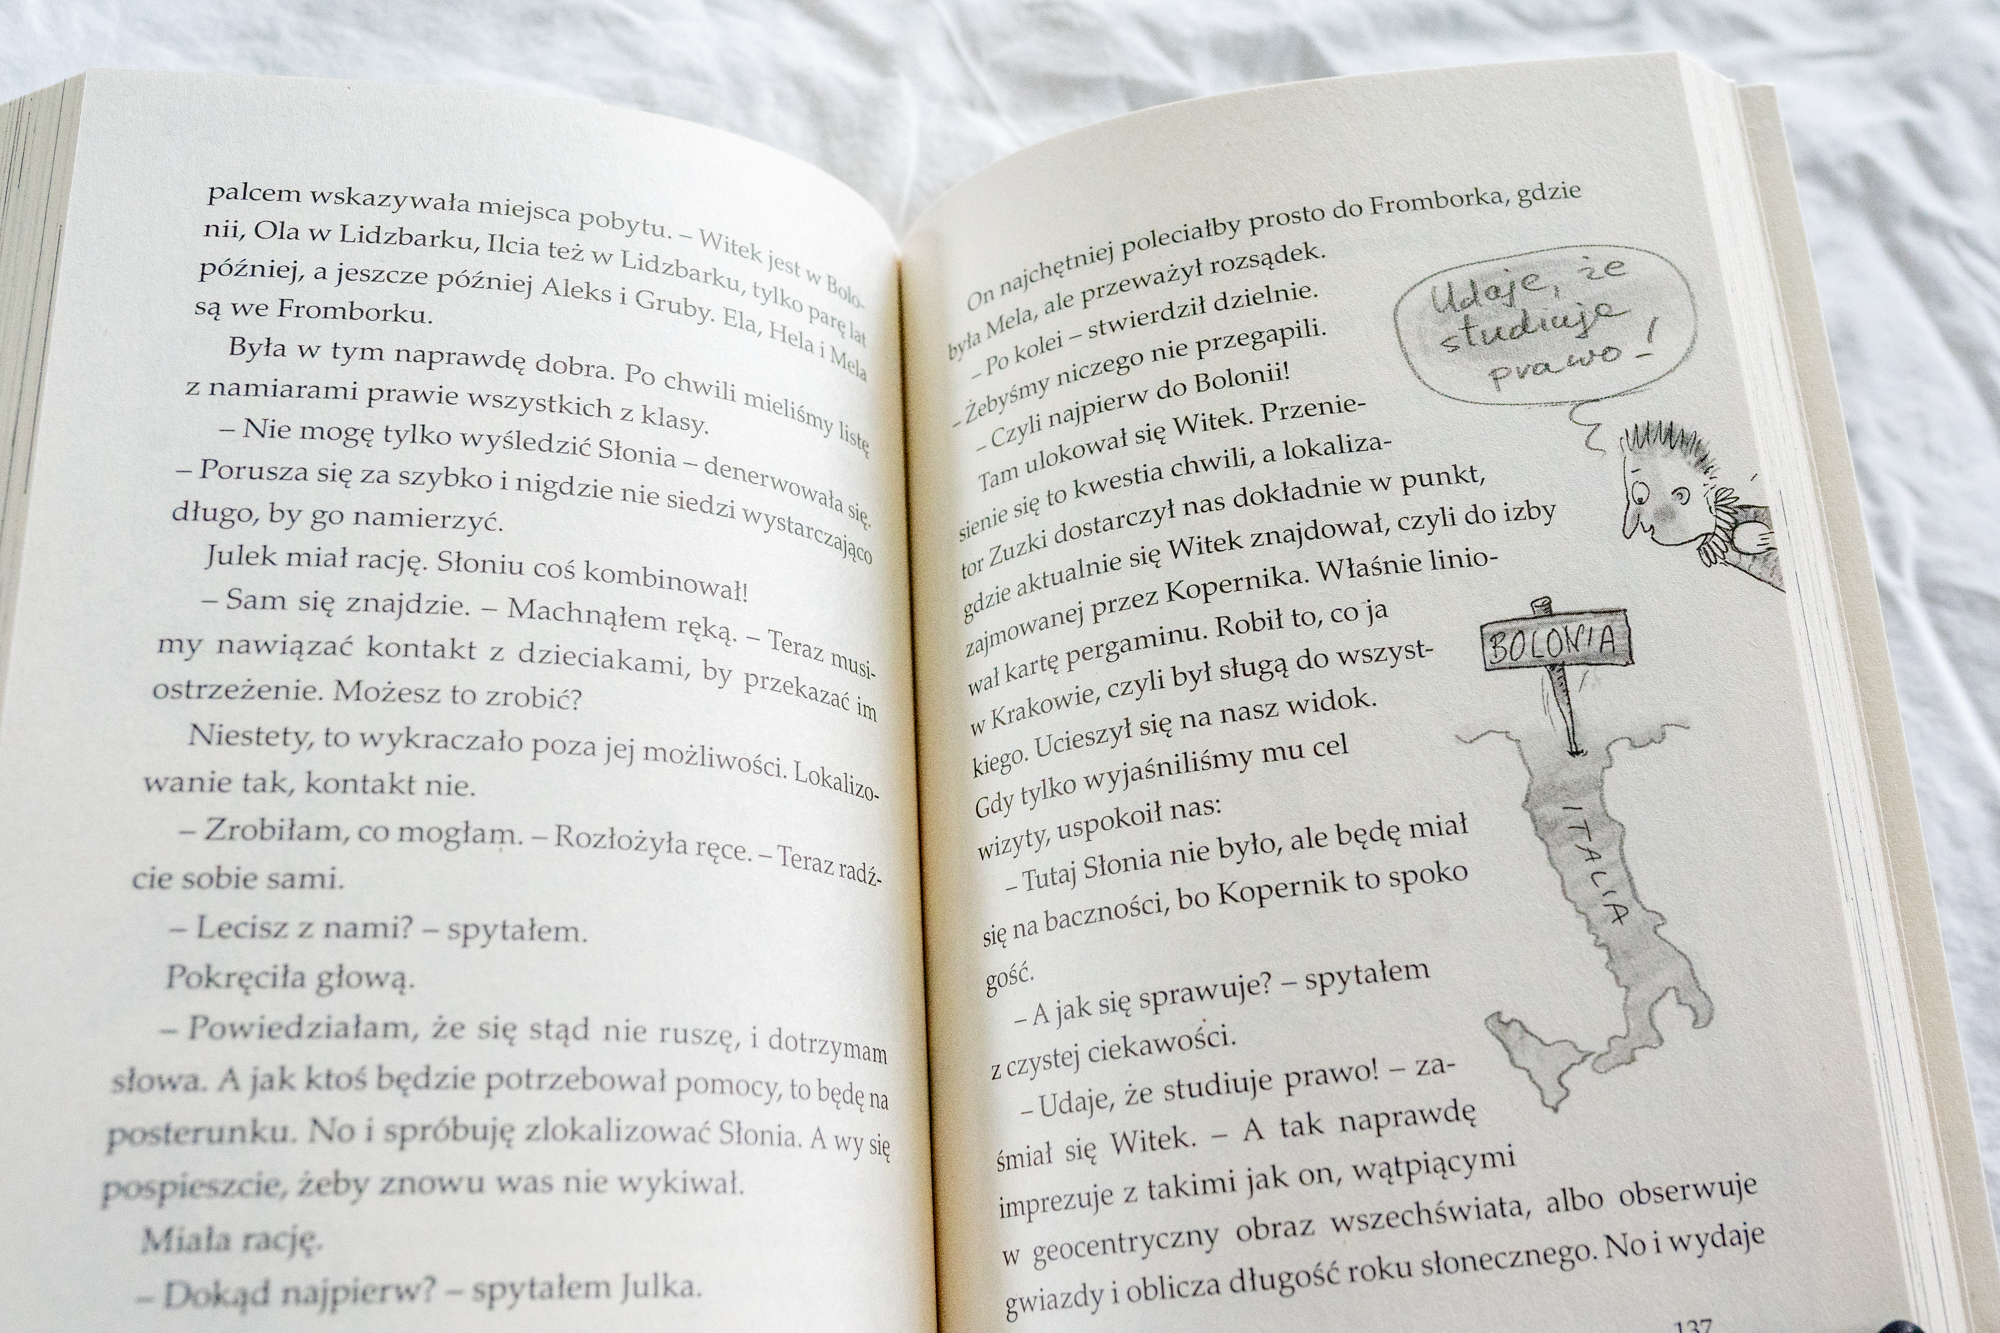 palcem wskazywała miejsca pobytu. – Witek jest w Bolo-
nii, Ola w Lidzbarku, Ilcia też w Lidzbarku, tylko parę lat
później, a jeszcze później Aleks i Gruby. Ela, Hela i Mela
są we Fromborku.
Była w tym naprawdę dobra. Po chwili mieliśmy listę
z namiarami prawie wszystkich z klasy.
– Nie mogę tylko wyśledzić Słonia – denerwowała się.
– Porusza się za szybko i nigdzie nie siedzi wystarczająco
długo, by go namierzyć.
Julek miał rację. Słoniu coś kombinował!
– Sam się znajdzie. – Machnąłem ręką. – Teraz musi-
my nawiązać kontakt z dzieciakami, by przekazać im
ostrzeżenie. Możesz to zrobić?
Niestety, to wykraczało poza jej możliwości. Lokalizo-
wanie tak, kontakt nie.
– Zrobiłam, co mogłam. – Rozłożyła ręce. – Teraz radź-
cie sobie sami.
– Lecisz z nami? – spytałem.
Pokręciła głową.
– Powiedziałam, że się stąd nie ruszę, i dotrzymam
słowa. A jak ktoś będzie potrzebował pomocy, to będę na
posterunku. No i spróbuję zlokalizować Słonia. A wy się
pospieszcie, żeby znowu was nie wykiwał.
Miała rację.
– Dokąd najpierw? – spytałem Julka.
On najchętniej poleciałby prosto do Fromborka, gdzie
była Mela, ale przeważył rozsądek.
– Po kolei – stwierdził dzielnie.
– Żebyśmy niczego nie przegapili.
– Czyli najpierw do Bolonii!
Tam ulokował się Witek. Przenie-
sienie się to kwestia chwili, a lokaliza-
tor Zuzki dostarczył nas dokładnie w punkt,
gdzie aktualnie się Witek znajdował, czyli do izby
zajmowanej przez Kopernika. Właśnie linio-
wał kartę pergaminu. Robił to, co ja
w Krakowie, czyli był sługą do wszyst-
kiego. Ucieszył się na nasz widok.
Gdy tylko wyjaśniliśmy mu cel
wizyty, uspokoił nas:
– Tutaj Słonia nie było, ale będę miał
się na baczności, bo Kopernik to spoko
gość.
– A jak się sprawuje? – spytałem
z czystej ciekawości.
– Udaje, że studiuje prawo! – za-
śmiał się Witek. – A tak naprawdę
imprezuje z takimi jak on, wątpiącymi
w geocentryczny obraz wszechświata, albo obserwuje
gwiazdy i oblicza długość roku słonecznego. No i wydaje
Udaje, że
studiuje
prawo!
BOLONIA
ITALIA
137